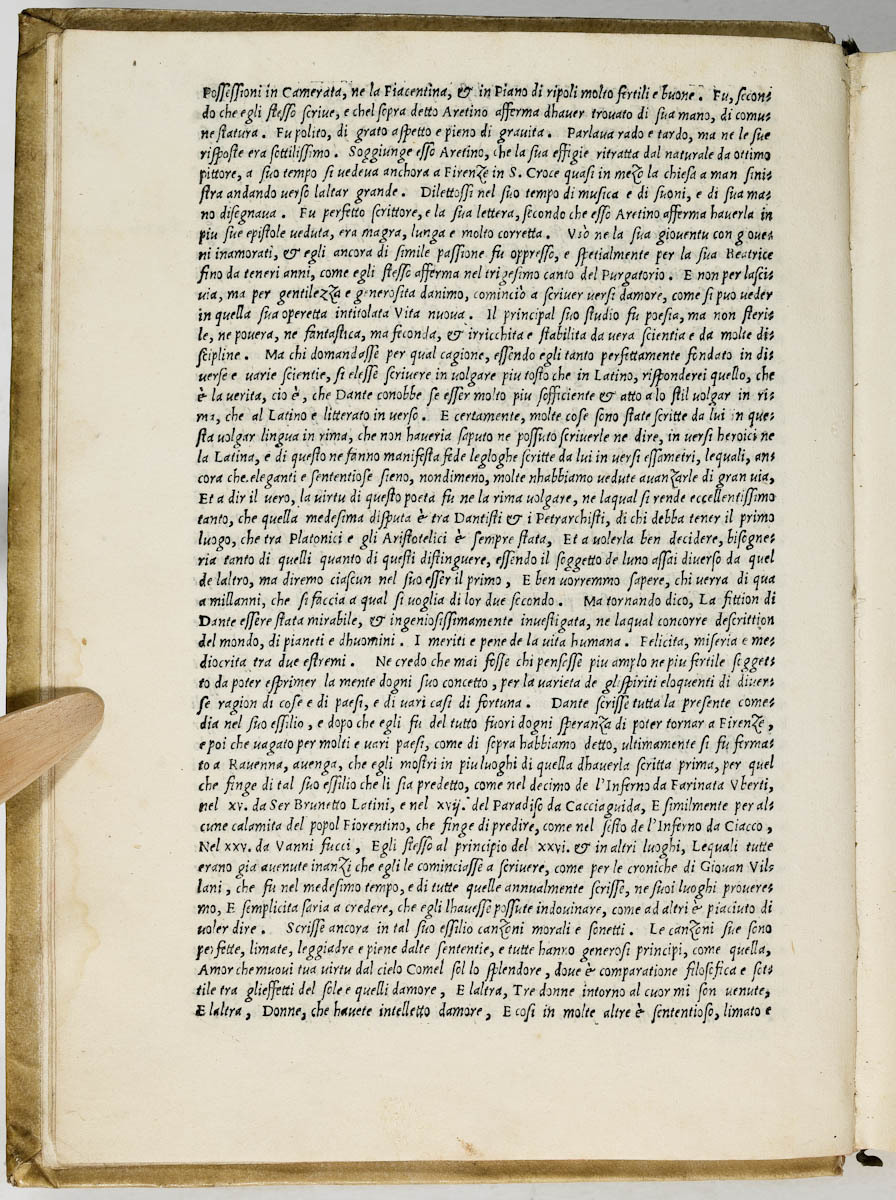 Possessioni in Camerata, ne la Piacentina, & in Piano di ripoli molto fertili e buone. Fu, secon=
do che egli stesso scriue, e chel sopra detto Aretino afferma dhauer trouato di sua mano, di comu=
ne statura. Fu polito, di grato aspetto e pieno di grauita. Parlaua rado e tardo, ma ne le sue
risposte era sottilissimo. Soggiunge esso Aretino, che la sua effigie ritratta dal naturale da ottimo
pittore, a suo tempo si vedeua anchora a Firenze in S. Croce quasi in mezo la chiesa a man sini=
stra andando verso laltar grande. Dilettossi nel suo tempo di musica e di suoni, e di sua ma=
no disegnaua. Fu perfetto scrittore, e la sua lettera, secondo che esso Aretino afferma hauerla in
piu sue epistole veduta, era magra, lunga e molto corretta. Vsò ne la sua gioventu con gioue=
ni inamorati, & egli ancora di simile passione fu oppresso, e spetialmente per la sua Beatrice
fino da teneri anni, come egli stesso afferma nel trigesimo canto del Purgatorio. E non per lasci=
uia, ma per gentilezza e generosita danimo, cominciò a scriuer versi damore, come si può veder
in quella sua operetta intitolata Vita nuoua. Il principal suo studio fu poesia, ma non steri=
le, ne pouera, ne fantastica, ma feconda, & irricchita e stabilita da vera scientia e da molte di=
scipline. Ma chi domandasse per qual cagione, essendo egli tanto perfettamente fondato in di=
uerse e varie scientie, si elesse scriuere in volgare piu tosto che in Latino, risponderei quello, che
è la verita, cio è, che Dante conobbe se esser molto piu sofficiente & atto a lo stil volgar in ri=
ma, che al Latino e litterato in verso. E certamente, molte cose sono state scritte da lui in que=
sta volgar lingua in rima, che non haueria saputo ne possuto scriuerle ne dire, in versi heroici ne
la Latina, e di questo ne fanno manifesta fede legloghe scritte da lui in versi essametri, lequali, an=
cora che eleganti e sententiose sieno, nondimeno, molte nhabbiamo vedute auanzarle di gran uia,
Et a dir il vero, la uirtu di questo poeta fu ne la rima volgare, ne laqual si rende eccellentissimo
tanto, che quella medesima disputa è tra Dantisti & i Petrarchisti, di chi debba tener il primo
luogo, che tra Platonici e gli Aristotelici è sempre stata, Et a volerla ben decidere, bisogne=
ria tanto di quelli quanto di questi distinguere, essendo il soggetto de luno assai diuerso da quel
de laltro, ma diremo ciascun nel suo esser il primo, E ben uorremmo sapere, chi verra di qua
a millanni, che si faccia a qual si uoglia di lor due secondo. Ma tornando dico, La fittion di
Dante essere stata mirabile, & ingeniosissimamente inuestigata, ne laqual concorre descrittion
del mondo, di pianeti e dhuomini. I meriti e pene de la uita humana. Felicita, miseria e me=
diocrita tra due estremi. Ne credo che mai fosse chi pensesse piu amplo ne piu fertile sogget=
to da poter esprimer la mente dogni suo concetto, per la varieta de gli spiriti eloquenti di diuer=
se ragion di cose e di paesi, e di uari casi di fortuna. Dante scrisse tutta la presente come=
dia nel suo essilio, e dopo che egli fu del tutto fuori dogni speranza di poter tornar a Firenze,
e poi che uagato per molti e uari paesi, come di sopra habbiamo detto, ultimamente si fu ferma=
to a Rauenna, auenga, che egli mostri in piu luoghi di quella dhauerla scritta prima, per quel
che finge di tal suo essilio che li sia predetto, come nel decimo de l'Inferno da Farinata Vberti,
nel xv. da Ser Brunetto Latini, e nel xvij. del Paradiso da Cacciaguida, E similmente per al=
cune calamita del popol Fiorentino, che finge di predire, come nel sesto de l'Inferno da Ciacco,
Nel xxv. da Vanni fucci, Egli stesso al principio del xxvi. & in altri luoghi, Lequali tutte
erano gia auenute inanzi che egli le cominciasse a scriuere, come per le croniche di Giouan Vil=
lani, che fu nel medesimo tempo, e di tutte quelle annualmente scrisse, ne suoi luoghi proueres
mo, E semplicita saria a credere, che egli lhauesse possute indouinare, come ad altri è piaciuto di
uoler dire. Scrisse ancora in tal suo essilio canzoni morali e sonetti. Le canzoni sue sono
perfette, limate, leggiadre e piene dalte sententie, e tutte hanno generosi principi, come quella,
Amor che muoui tua virtu dal cielo Comel sol lo splendore, doue è comparatione filosofica e sot=
tile tra glieffetti del sole e quelli damore, E laltra, Tre donne intorno al cuor mi son venute,
E laltra, Donne, che hauete intelletto damore, E cosi in molte altre è sententioso, limato e